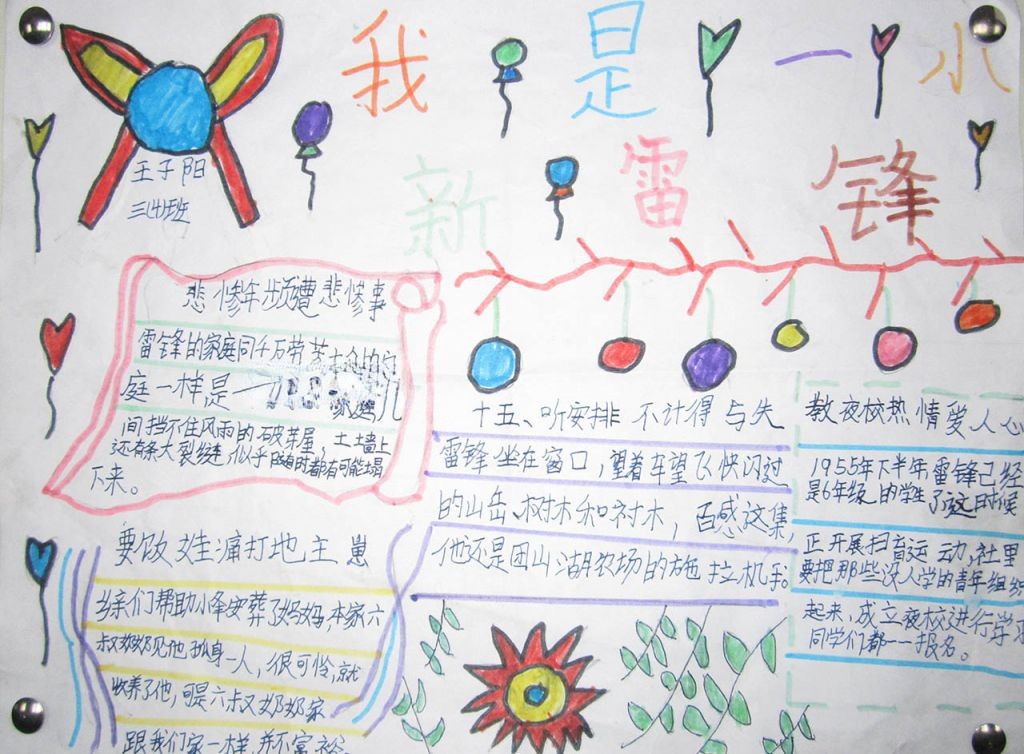 我是一小
新雷锋
王子阳
三(4)班
悲惨年频遭悲惨事
雷锋的家庭同千万劳苦大众的家
庭一样是一
间挡不住风雨的破茅屋，土墙上
还有条大裂缝，似乎随时都有可能塌
下来。
要饭娃痛打地主崽
乡亲们帮助小锋安葬了妈妈，本家六
叔奶奶见他孤身一人，很可怜，就
收养了他，可是六叔奶奶家
跟我们家一样，并不富裕。
十五、听安排 不计得与失
雷锋坐在窗口，望着车望飞快闪过
的山岳、树木和村木，百感这集，
他还是团山湖农场的施拉机手。
教夜校热情爱人心
1955年下半年雷锋已经
是6年级的学生了这时候
正开展扫盲运动，社里
要把那些没入学的青年组织
起来，成立夜校进行学习
同学们都一一报名。